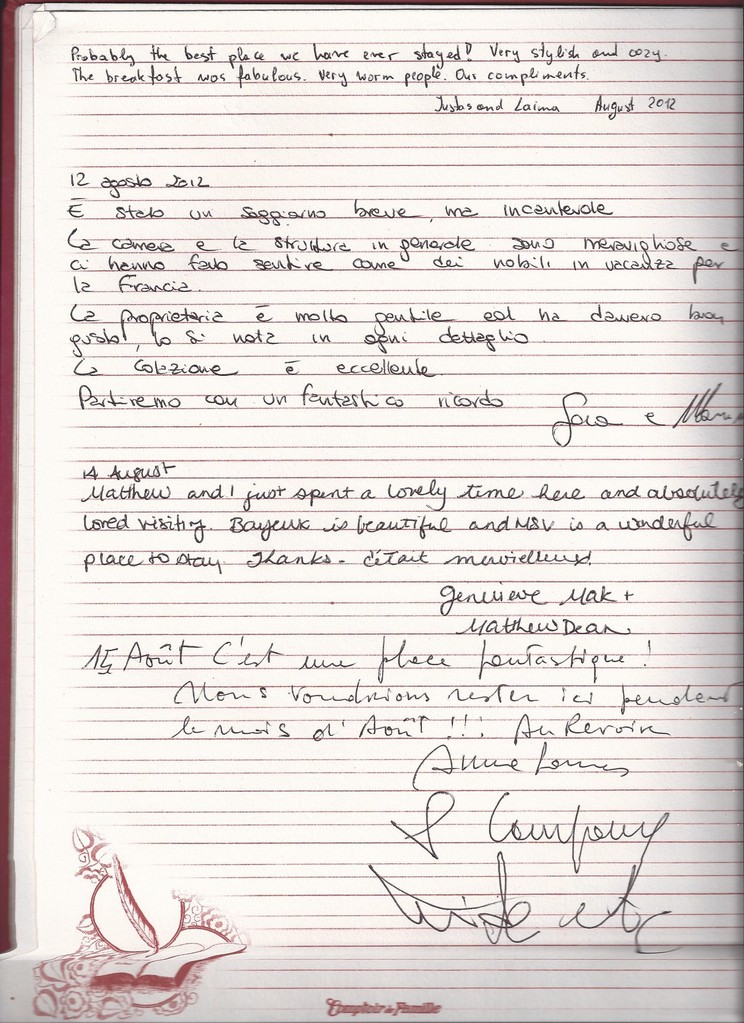 Probably the best place we have ever stayed! Very stylish and cozy.
The breakfast was fabulous. Very worm people. Our compliments.
Justas and Laima August 2012
12 agosto 2012
È stato un soggiorno breve, ma incantevole
La camera e la struttura in generale sono meravigliose e
ci hanno fatto sentire come dei nobili in vacanza per
la Francia.
La proprietaria è molto gentile ed ha davvero buon
gusto, lo si nota in ogni dettaglio
La colazione è eccellente
Partiremo con un fantastico ricordo
Sara e
14 August
Matthew and I just spent a lovely time here and absolutely
loved visiting. Bayeux is beautiful and MSV is a wonderful
place to stay. Thanks - c'était mervielleux!
Genevieve Mak +
Matthew Dean
15 Août C'est une place fantastique!
Nous voudrions rester ici pendent
le mois d'Août!!! Au Revoir
Anne
& Company
Comptoir de Famille